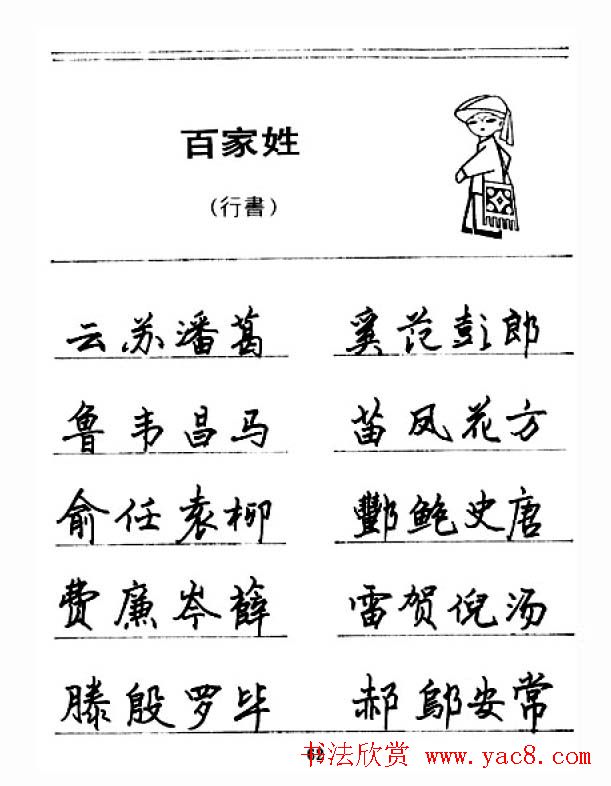 百家姓
(行書)
云苏潘葛 奚范彭郎
鲁韦昌马 苗凤花方
俞任袁柳 酆鲍史唐
费廉岑薛 雷贺倪汤
滕殷罗毕 郝邬安常
62
书法欣赏 www.yac8.com